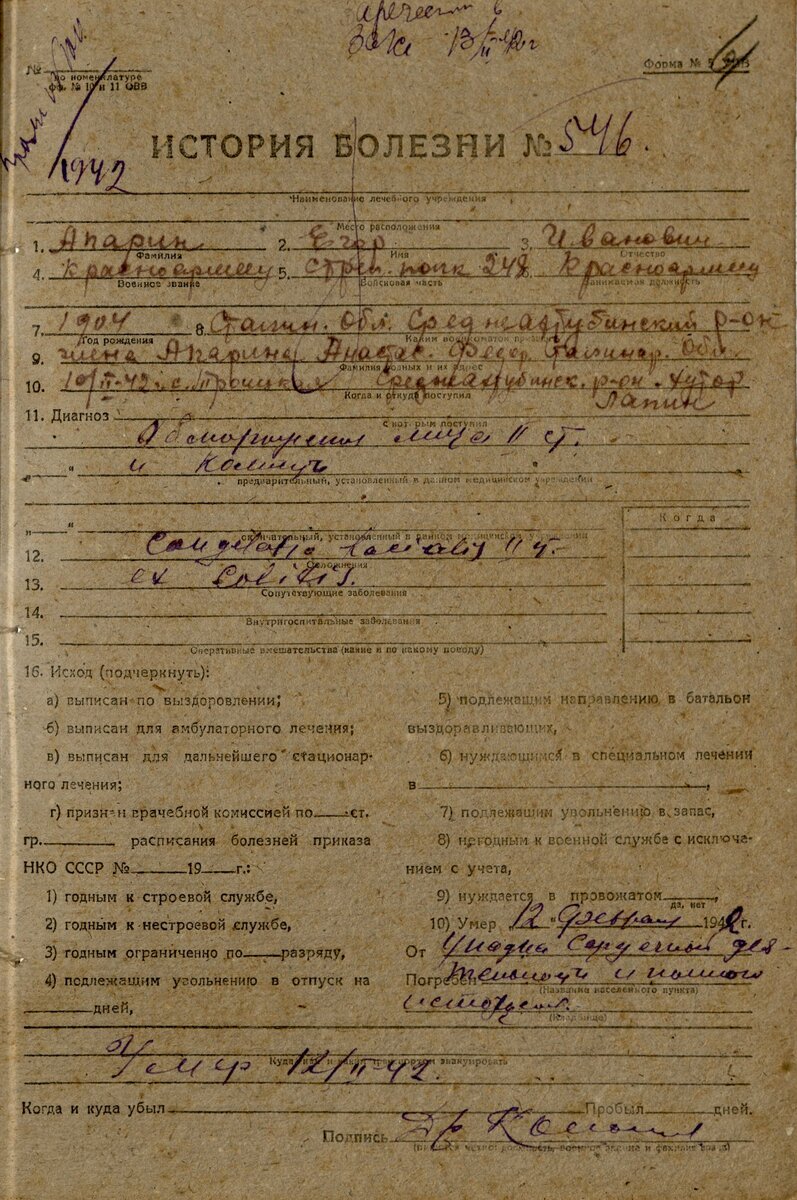 в
Зак. 13/II 42 г
№
по номенклатуре
фр. № 10 и 11 ОВВ
Форма №
1942
ИСТОРИЯ БОЛЕЗНИ № 546.
Наименование лечебного учреждения
Место расположения
1. Апарин 2. Егор 3. Иванович
Фамилия Имя Отчество
4. Красноармеец 5. Стрел. полк 248 Красноармеец
Военное звание Войсковая часть Занимаемая должность
7. 1904 8. Сталин. Обл. Среднеахтубинский р-он
Год рождения Каким военкоматом
9. жена Апарина Анастас. Федор. Сталингр. Обл.
Фамилия родных и их адрес
10. 10/II-42 с. Среднеахтубинск. р-он. хутор
Когда и откуда поступил
Лапин
11. Диагноз
с которым поступил
Обморожение лица II ст.
„ и Колит „
предварительный, установленный в данном медицинском учреждении
„ „
окончательный, установленный в данном медицинском учреждении
Когда
12. Congelatio faecialis II
Осложнения
13. ex Colitis.
Сопутствующие заболевания
14.
Внутригоспитальные заболевания
15.
Оперативные вмешательства (какие и по какому поводу)
16. Исход (подчеркнуть):
а) выписан по выздоровлении;
б) выписан для амбулаторного лечения;
в) выписан для дальнейшего стационар-
ного лечения;
г) признан врачебной комиссией по ст.
гр. расписания болезней приказа
НКО СССР № 19 г.:
1) годным к строевой службе,
2) годным к нестроевой службе,
3) годным ограниченно по разряду,
4) подлежащим увольнению в отпуск на
дней,
5) подлежащим направлению в батальон
выздоравливающих,
6) нуждающимся в специальном лечении
в ,
7) подлежащим увольнению в запас,
8) негодным к военной службе с исключе-
нием с учета,
9) нуждается в провожатом ,
да, нет
10) Умер 12 " Февраля 1942 г.
От Упадка Сердечной дея-
Погребен тельности и полного
(Название населенного пункта)
истощения.
(Кладбище)
Куда, как и каким транспортом эвакуировать
Умер 12/II-42.
Когда и куда убыл Пробыл дней.
Подпись Др